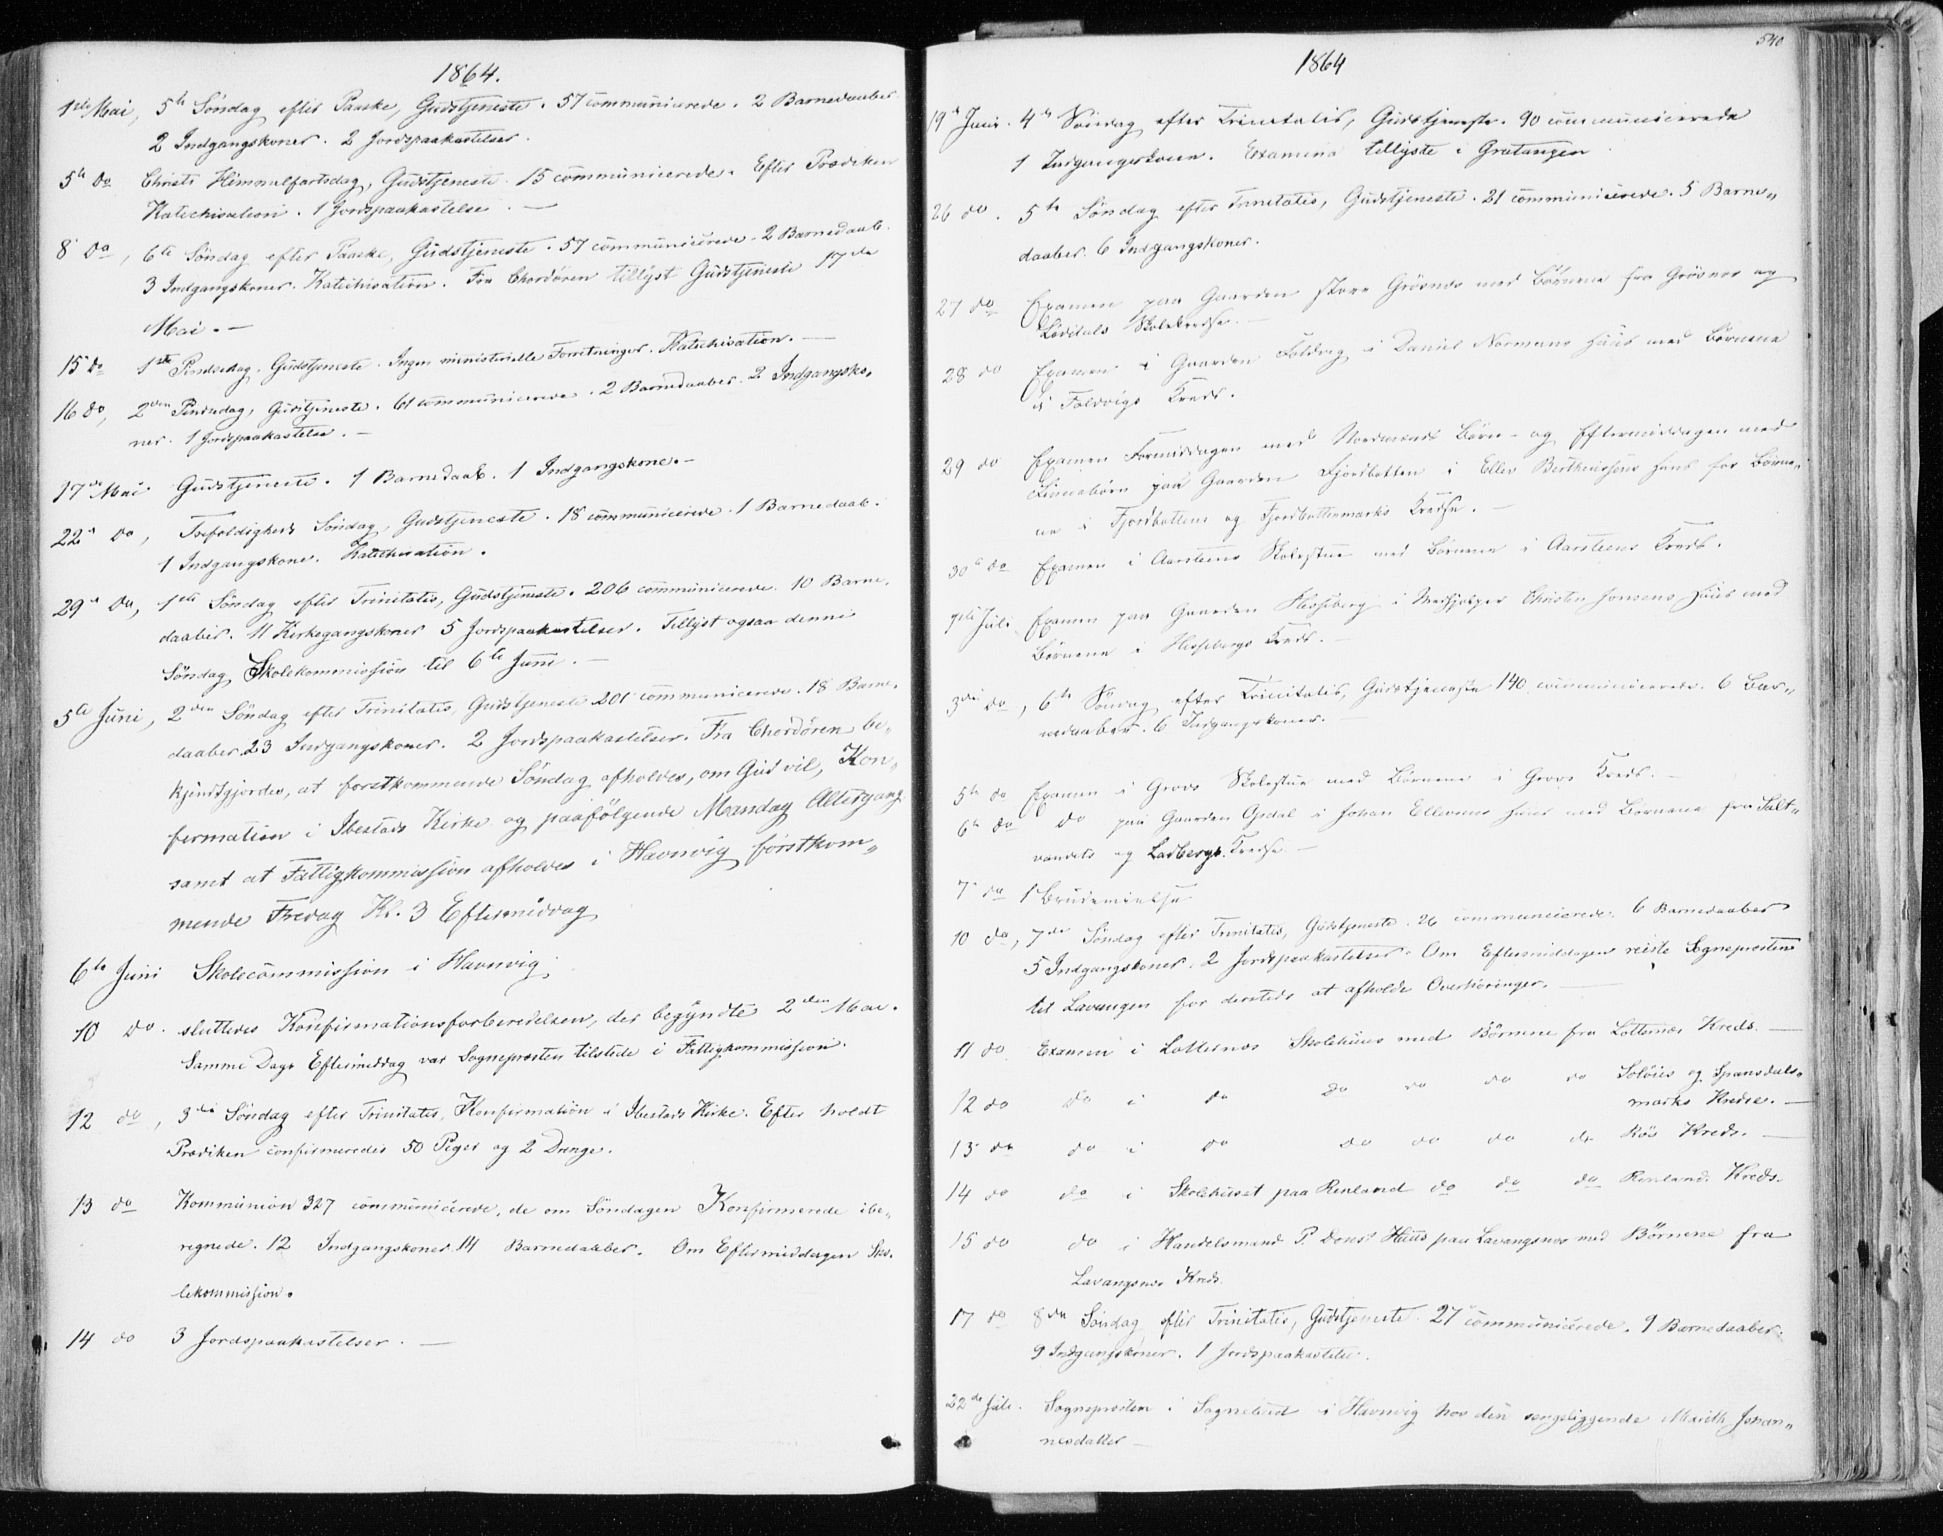 1864.
1ste Mai, 5te Søndag efter Paaske, Gudstjeneste. 57 communicerede. 2 Barnedaaber
2 Indgangskoner. 2 Jordspaakastelser.
5te do Christi Himmelfartsdag, Gudstjeneste. 15 communicerede. Efter Prædiken
Katechisation. 1 Jordspaakastelse. —
8 do, 6te Søndag efter Paaske, Gudstjeneste. 57 communicerede. 2 Barnedaab.
3 Indgangskoner. Katechisation. Fra Chordøren tillyst Gudstjeneste 17de
Mai. —
15 do 1ste Pindsedag. Gudstjeneste. Ingen ministerielle Forretninger. Katechisation. —
16 do, 2den Pindsedag, Gudstjeneste. 61 communicerede. 2 Barnedaaber. 2 Indgangsko-
ner. 1 Jordspaakastelse. —
17de Mai Gudstjeneste. 1 Barnedaab. 1 Indgangskone. —
22 do, Trefoldigheds Søndag, Gudstjeneste. 18 communicerede. 1 Barnedaab.
1 Indgangskone. Katechisation.
29 do, 1ste Søndag efter Trinitatis, Gudstjeneste. 206 communicerede. 10 Barne-
daaber. 11 Kirkegangskoner 5 Jordspaakastelser. Tillyst ogsaa denne
Søndag Skolekommission til 6te Juni. —
5te Juni, 2den Søndag efter Trinitatis, Gudstjeneste 201 communicerede. 18 Barne-
daaber. 23 Indgangskoner. 2 Jordspaakastelser. Fra Chordøren be-
kjendtgjordes, at førstkommende Søndag afholdes, om Gud vil, Kon-
firmation i Ibestads Kirke og paafølgende Mandag Altergang
samt at Fattigkommission afholdes i Havnvig førstkom-
mende Fredag Kl. 3 Eftermiddag
6te Juni Skolecommission i Havnvig.
10 do. sluttedes Konfirmationsforberedelsen, der begyndte 2den Mai.
Samme Dags Eftermiddag var Sognepræsten tilstede i Fattigkommission.
12 do, 3die Søndag efter Trinitatis, Konfirmation i Ibestads Kirke. Efter holdt
Prædiken confirmeredes 50 Piger og 2 Drenge.
13 do Kommunion 327 communicerede, de om Søndagen Konfirmerede ibe-
regnede. 12 Indgangskoner. 14 Barnedaaber. Om Eftermiddagen Sko-
lekommission.
14 do 3 Jordspaakastelser. —
540
1864
19de Juni. 4de Søndag efter Trinitatis, Gudstjeneste. 90 communicerede
1 Indgangskone. Examina tillyste i Gratangen
26 do. 5te Søndag efter Trinitatis, Gudstjeneste. 21 communicerede. 5 Barne-
daaber. 6 Indgangskoner.
27 do Examen paa Gaarden store Grøvnes med Børnene fra Grøvnes og
Skolekredse. —
28 do Examen i Gaarden Foldvig i Daniel Normans Huus med Børnene
i Foldvigs Kreds.
29 do Examen Formiddagen med Nordmænds Børn- og Eftermiddagen med
Finnebørn paa Gaarden Fjordbotten i Ellev Bertheussens Huus for Børne-
ne i Fjordbottens og Fjordbottenmarks Kredse. —
30 do Examen i Aarsteens Skolestue med Børnene i Aarsteens Kreds.
1ste Juli Examen paa Gaarden Hesseberg i Christen Jonsens Huus med
Børnene i Hessebergs Kreds. —
3die do, 6te Søndag efter Trinitatis, Gudstjeneste 140 communicerede. 6 Bar-
nedaaber. 6 Indgangskoner. —
5te do Examen i Grovs Skolestue med Børnene i Grovs Kreds. —
6te do do paa Gaarden Opdal i Johan Ellevsens Huus med Børnene fra Salt-
vandets og Ladbergs Kredse —
7 do 1 Brudevielse
10 do, 7de Søndag efter Trinitatis, Gudstjeneste. 26 communicerede. 6 Barnedaaber
5 Indgangskoner. 2 Jordspaakastelser. Om Eftermiddagen reiste Sognepræsten
til Lavangen for dersteds at afholde Overhøringer. —
11 do Examen i Lottesnes Skolehuus med Børnene fra Lottesnes Kreds. —
12 do do i do do do do do Soløies og Spansdals-
marks Kredse. —
13 do do i do do do do do Røs Kreds. —
14 do do i Skolehuset paa Rønland do do do Rønlands Kreds.
15 do do i Handelsmand P. Dons' Huus paa Lavangsnes med Børnene fra
Lavangsnes Kreds.
17 do 8de Søndag efter Trinitatis, Gudstjeneste. 27 communicerede. 9 Barnedaaber.
9 Indgangskoner. 1 Jordspaakastelse.
22de Juli. Sognepræsten i Sognebud i Havnvig hos den sengeliggende Mareth Johan-
nesdatter —